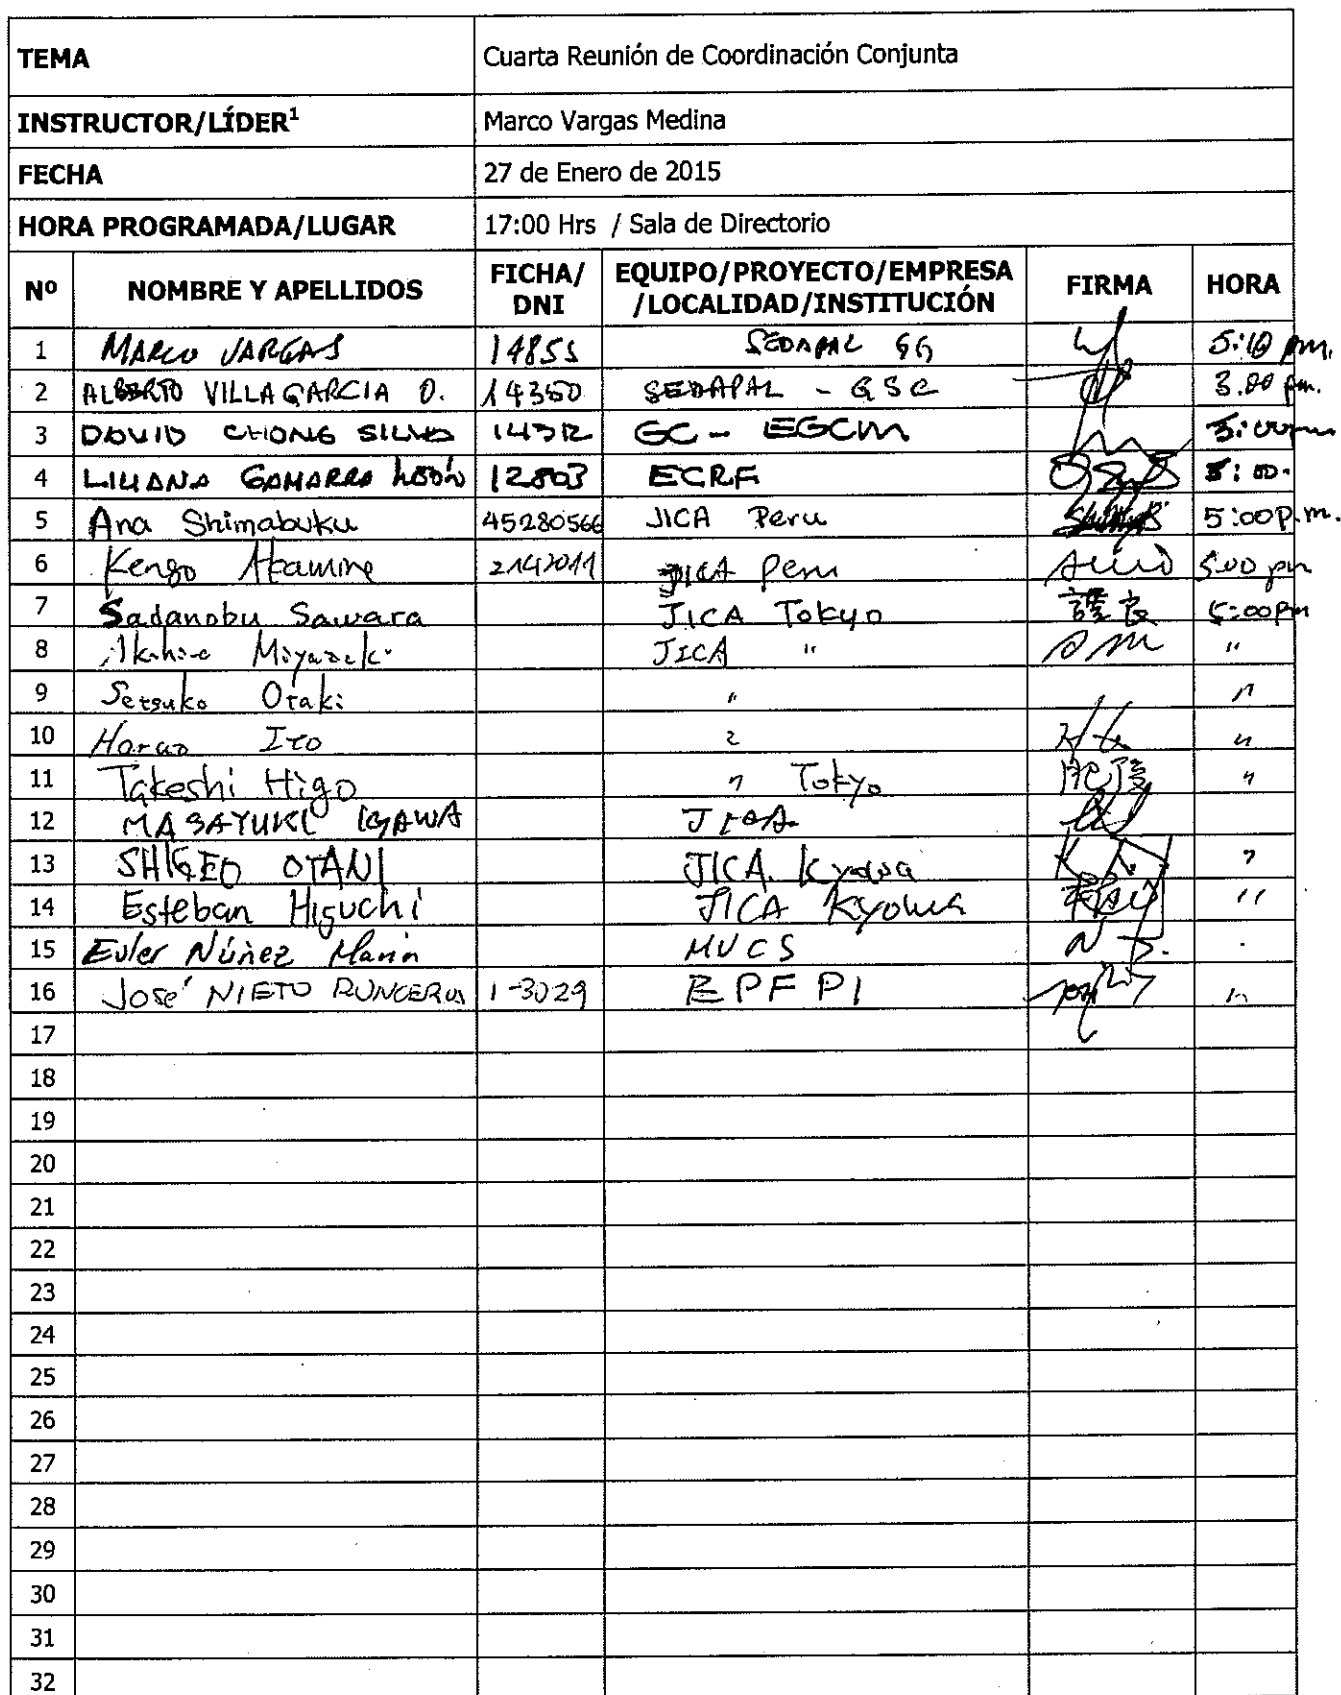 TEMA Cuarta Reunión de Coordinación Conjunta
INSTRUCTOR/LÍDER¹ Marco Vargas Medina
FECHA 27 de Enero de 2015
HORA PROGRAMADA/LUGAR 17:00 Hrs / Sala de Directorio
Nº NOMBRE Y APELLIDOS FICHA/ DNI EQUIPO/PROYECTO/EMPRESA /LOCALIDAD/INSTITUCIÓN FIRMA HORA
1 MARCO VARGAS 14855 SEDAPAL GG 5:10 pm.
2 ALBERTO VILLAGARCIA O. 14350 SEDAPAL - GSC 3.00 pm.
3 DAVID CHONG SILVA 14312 GC - EGCM 5:00pm
4 LILIANA GAMARRA 12803 ECRF 5:00.
5 Ana Shimabuku 45280566 JICA Peru 5:00p.m.
6 Kengo Akamine JICA Peru 5:00 pm
7 Sadanobu Sawara JICA Tokyo 5:00pm
8 Akihiro Miyazaki JICA " "
9 Setsuko Otaki " "
10 Haruo Ito "
11 Takeshi Higo " Tokyo "
12 MASAYUKI IGAWA JICA
13 SHIGEO OTANI JICA. Kyowa "
14 Esteban Higuchi JICA Kyowa "
15 Euler Núñez Marín MVCS
16 José NIETO 1-3029 EPFPI "
17
18
19
20
21
22
23
24
25
26
27
28
29
30
31
32